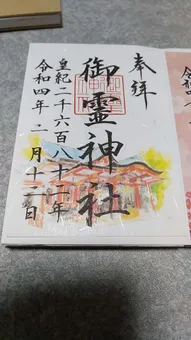 奉拝
御霊神社
皇紀二千六百八十二年
令和四年十一月十二日